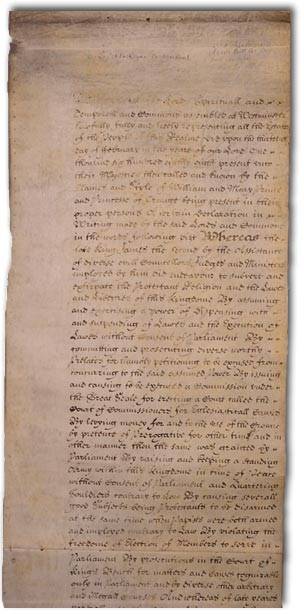 Lords Spirituall and
Temporall and Commons assembled at Westminster
lawfully fully and freely representing all the Estates
of the People of this Realme did upon the
day of February in the yeare of our Lord One
thousand six hundred eighty eight present unto
their Majesties then called and known by the
Names and Stile of William and Mary Prince
and Princesse of Orange being present in their
proper Persons A certain Declaration in
Writing made by the said Lords and Commons
in the words following viz Whereas the
late King James the second by the Assistance
of diverse evill Councellors Judges and Ministers
imployed by him did endeavor to subvert and
extirpate the Protestant Religion and the Lawes
and Liberties of this Kingdome By assuming
and exercising a power of Dispensing with
and suspending of Lawes and the Execution of
Lawes without Consent of Parliament By
committing and prosecuting diverse worthy
Prelates for humbly petitioning to be excused from
concurring to the said assumed Power By issuing
and causing to be executed a Commission under
the Great Seale for erecting a Court called the
Court of Commissioners for Ecclesiasticall Causes
By levying money for and to the Use of the Crowne
by pretence of Prerogative for other time and in
other manner than the same was granted by
Parliament By raising and keeping a standing
Army within this Kingdome in time of Peace
without Consent of Parliament and Quartering
Souldiers contrary to Law By causing severall
good Subjects being Protestants to be disarmed
at the same time when Papists were both armed
and imployed contrary to Law By violating the
freedome of Election of Members to serve in
Parliament By prosecutions in the Court of
Kings Bench for matters and causes cognizable
only in Parliament and by diverse other arbitrary
and illegall Courses And whereas of late yeares